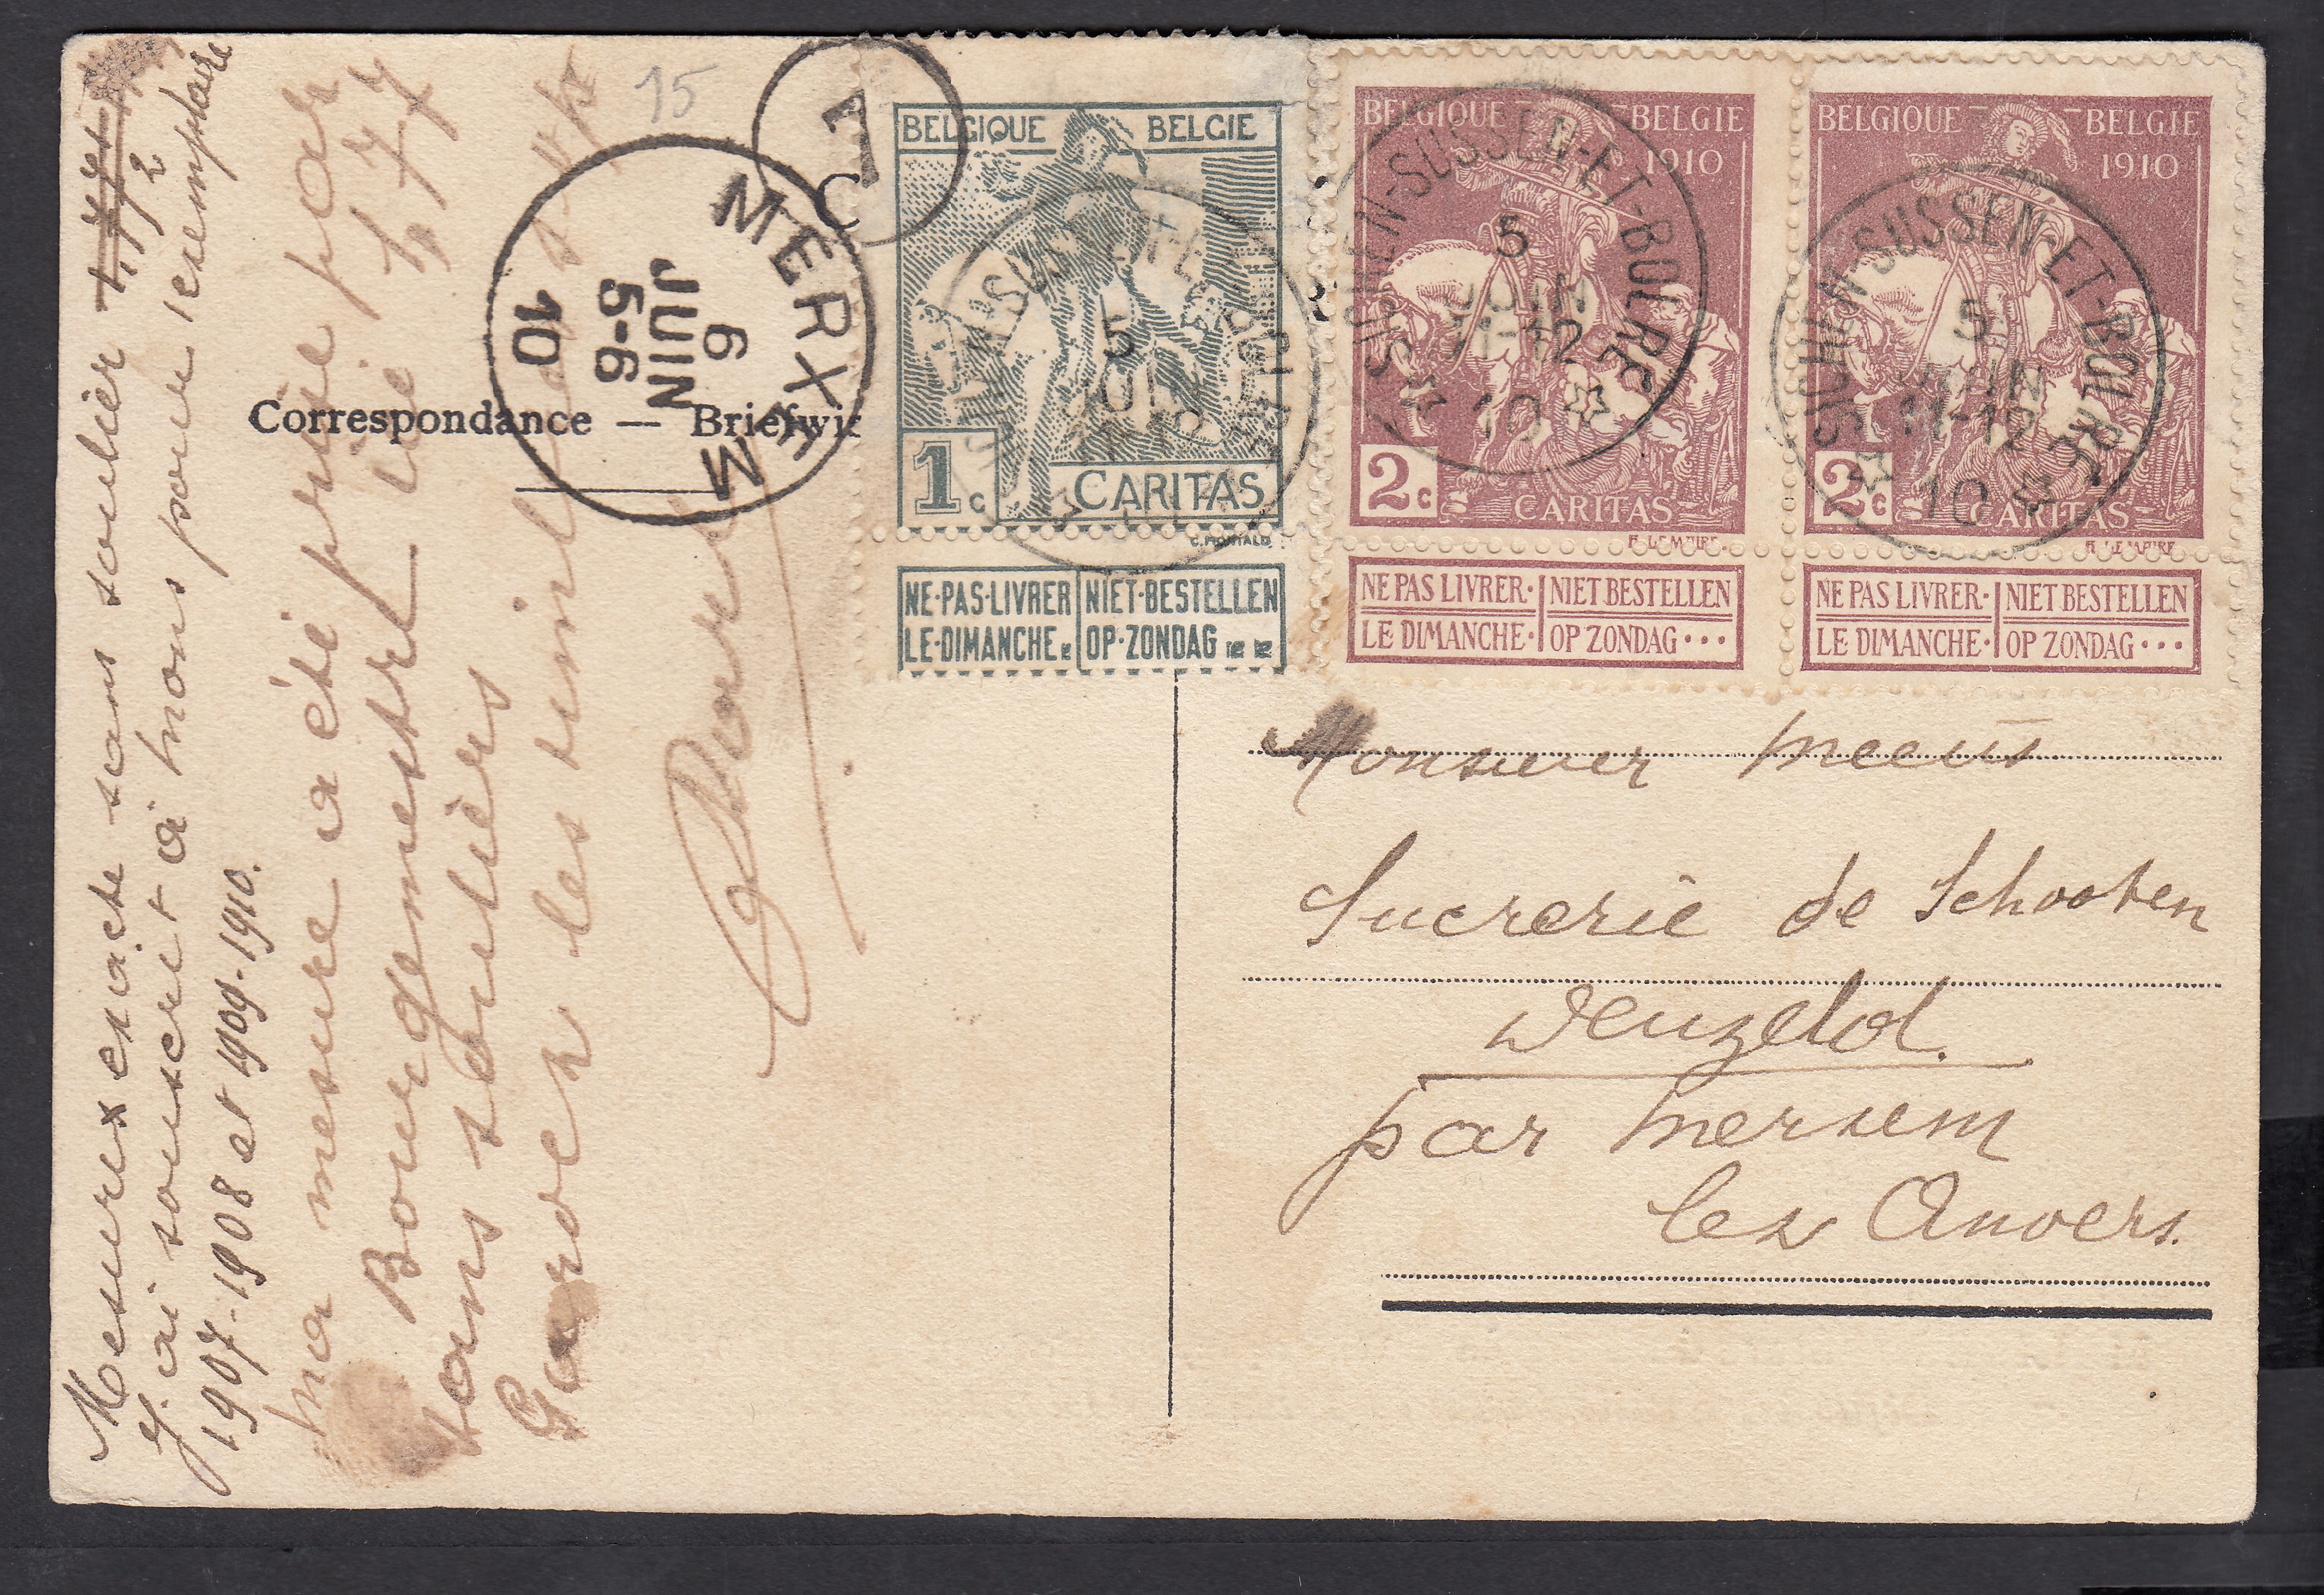 15
7
C
MERXEM
6
JUIN
5-6
10
BELGIQUE BELGIE
1c CARITAS
C. MONTALD.
NE·PAS·LIVRER NIET·BESTELLEN
LE·DIMANCHE OP·ZONDAG
5
JUIN
BELGIQUE BELGIE
1910
2c CARITAS
NE PAS LIVRER· NIET BESTELLEN
LE DIMANCHE· OP ZONDAG···
SUSSEN-ET-BOLRE
5
JUIN
11-12
10
BELGIQUE BELGIE
1910
2c CARITAS
NE PAS LIVRER· NIET BESTELLEN
LE DIMANCHE· OP ZONDAG···
SUSSEN-ET-BOLRE
5
JUIN
11-12
10
Correspondance — Briefwi
Mesures exacte sans soulier
J'ai souscrit à pour l'exemplaire
1907-1908 et 1909-1910.
ma mesure a été prise par
Bourgemestre
sans souliers
les
Monsieur Meeus
Sucrerie de Schooten
Deuzeld.
par Merxem
lez Anvers.